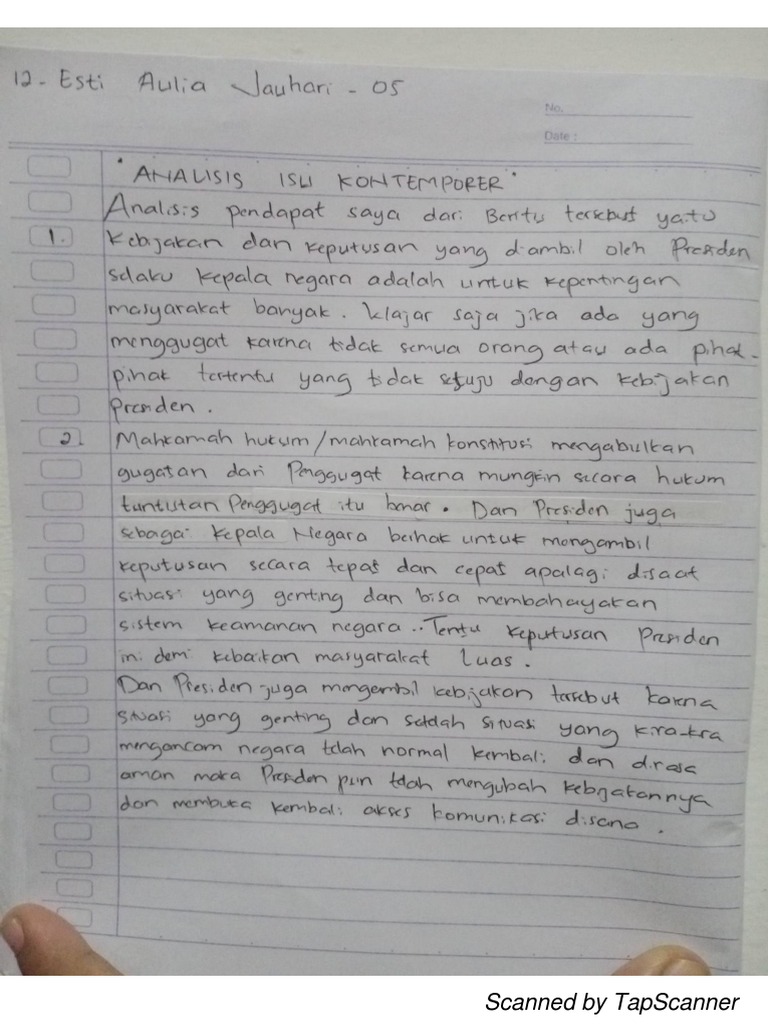 12- Esti Aulia Jauhari - 05
No.
Date :
"ANALISIS ISU KONTEMPORER"
Analisis pendapat saya dari Berita tersebut yaitu
1. Kebijakan dan keputusan yang diambil oleh Presiden
selaku kepala negara adalah untuk kepentingan
masyarakat banyak. Wajar saja jika ada yang
menggugat karena tidak semua orang atau ada pihak-
pihak tertentu yang tidak setuju dengan kebijakan
Presiden.
2. Mahkamah hukum/mahkamah konstitusi mengabulkan
gugatan dari Penggugat karena mungkin secara hukum
tuntutan Penggugat itu benar. Dan Presiden juga
sebagai Kepala Negara berhak untuk mengambil
keputusan secara tepat dan cepat apalagi disaat
situasi yang genting dan bisa membahayakan
sistem keamanan negara.. Tentu keputusan Presiden
ini demi kebaikan masyarakat luas.
Dan Presiden juga mengambil kebijakan tersebut karena
situasi yang genting dan setelah situasi yang kira-kira
mengancam negara telah normal kembali dan dirasa
aman maka Presiden pun telah mengubah kebijakannya
dan membuka kembali akses komunikasi disana.
Scanned by TapScanner